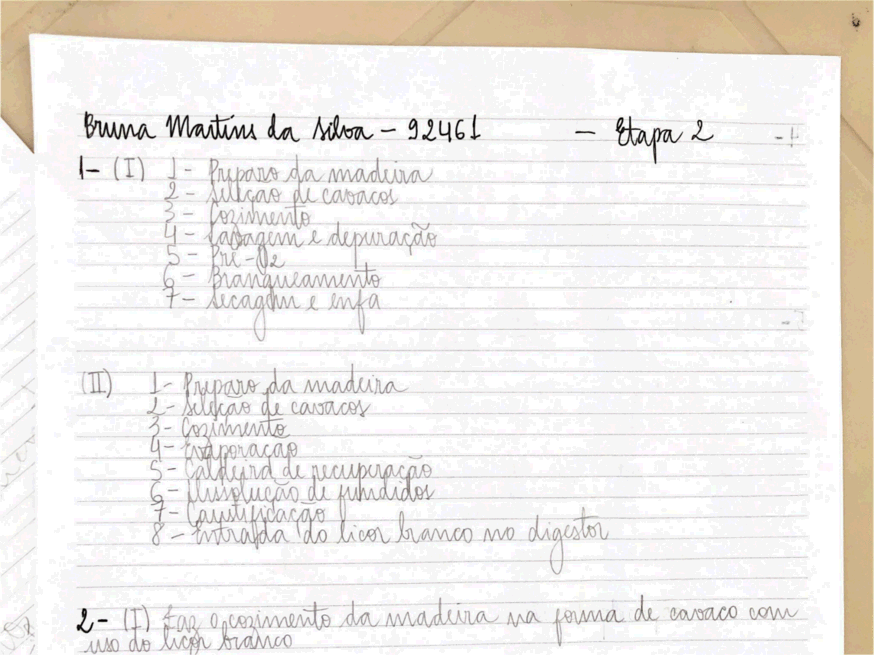 Bruna Martins da Silva - 92461 - Etapa 2
1- (I) 1- Preparo da madeira
2- Seleção de cavacos
3- Cozimento
4- Lavagem e depuração
5- Pré-O2
6- Branqueamento
7- Secagem e enfa
(II) 1- Preparo da madeira
2- Seleção de cavacos
3- Cozimento
4- Evaporação
5- Caldeira de recuperação
6- Dissolução de fundidos
7- Caustificação
8- Entrada do licor branco no digestor
2- (I) Faz o cozimento da madeira na forma de cavaco com
uso do licor branco